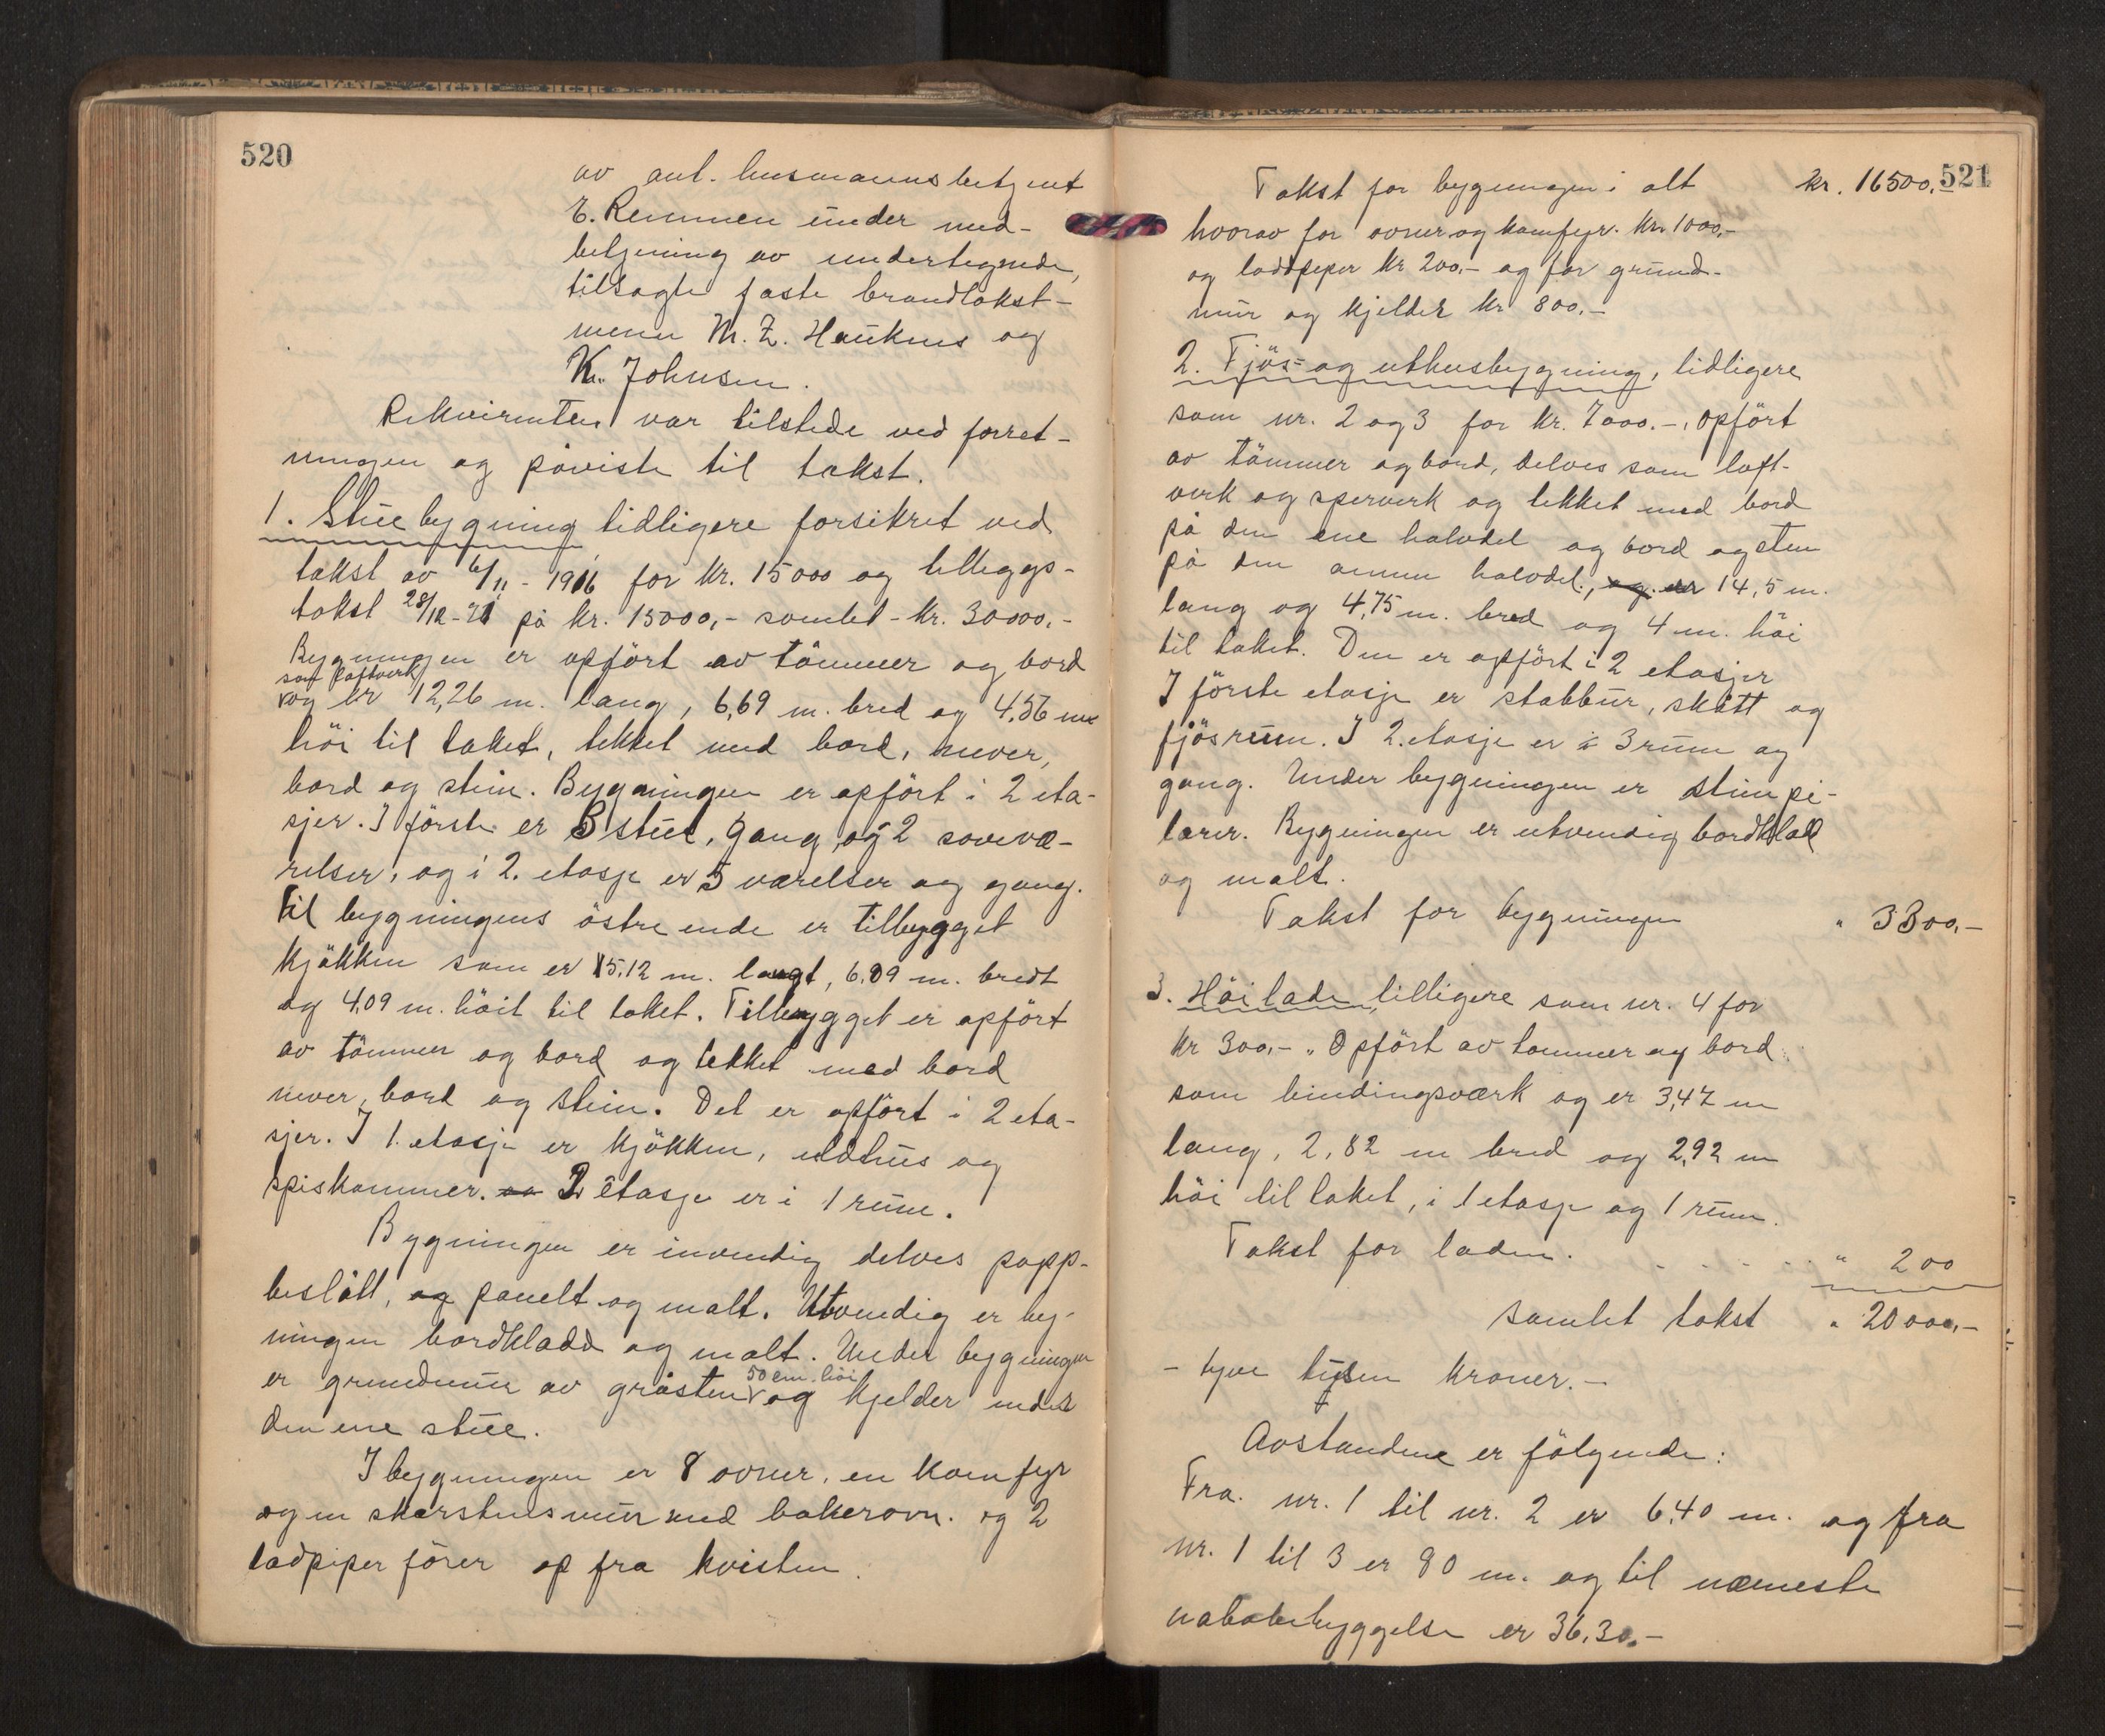 520
av aut. lensmannsbetjent
E. Remmen under med-
betjening av undertegnede,
tilsagte faste brandtakst-
menn M. Z. Hauknes og
K. Johnsen.
Rekvirenten var tilstede ved forret-
ningen og påviste til takst.
1. Stuebygning tidligere forsikret ved
takst av 6/11 - 1916 for kr. 15000 og tilleggs-
takst 28/12-21 på kr. 15000,- samlet - kr. 30000.-
Bygningen er opført av tømmer og bord
som laftverk
og er 12,26 m. lang, 6,69 m. bred og 4,56 m
høi til taket, tekket med bord, never,
bord og stein. Bygningen er opført i 2 eta-
sjer. I første er 3 stuer, gang og 2 sovevæ-
relser, og i 2. etasje er 5 værelser og gang.
Til bygningens østre ende er tilbygget
kjøkken som er 5,12 m. langt, 6.09 m. bredt
og 4,09 m. høit til taket. Tilbygget er opført
av tømmer og bord og tekket med bord
never, bord og stein. Det er opført i 2 eta-
sjer. I 1. etasje er kjøkken, eldhus og
spiskammer. 2 etasje er i 1 rum.
Bygningen er invendig delves papp-
beslått, og panelt og malt. Utvendig er byg-
ningen bordkladd og malt. Under bygningen
50 cm. höi
er grundmur av gråsten og kjelder under
den ene stue.
I bygningen er 8 ovner, en komfyr
og en skorstensmur med bakerovn. og 2
lodpiper förer op fra kvisten.
521
Takst for bygningen i alt kr. 16500,-
hvorav for ovner og komfyr. kr. 1000,-
og loddpiper kr 200,- og for grund-
mur og kjelder kr 800.-
2. Fjös- og uthusbygning, tidligere
som nr. 2 og 3 for kr. 7000.-, opført
av tömmer og bord, delves som laft-
verk og sperverk og tekket med bord
på den ene halvdel og bord og sten
på den annen halvdel, og er 14,5 m.
lang og 4,75 m. bred og 4 m. höi
til taket. Den er opført i 2 etasjer
I förste etasje er stabbur, skått og
fjösrum. I 2. etasje er i 3 rum og
gang. Under bygningen er stein pi-
larer. Bygningen er utvendig bordkladd
og malt.
Takst for bygningen " 3300,-
3. Höilade, tilligere som nr. 4 for
kr 300,- . Opfört av tømmer og bord
som bindingsværk og er 3,47 m
lang, 2,82 m bred og 2,92 m
höi til taket, i 1 etasje og 1 rum.
Takst for laden. . . . . . " 200
samlet takst " 20000,-
- tyve tusen kroner. -
Avstandene er fölgende:
Fra. nr. 1 til nr. 2 er 6,40 m. og fra
nr. 1 til 3 er 80 m. og til nærmeste
nabobebyggelse er 36,30.-